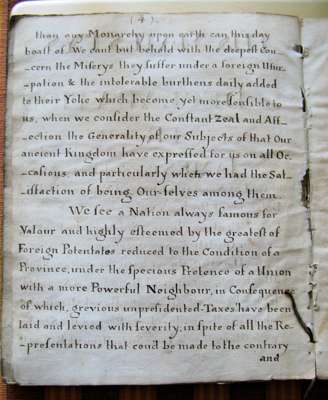 (4)
than any Monarchy upon earth can this day
boast of. We cant but behold with the deepest Con-
-cern the Miserys they suffer under a foreign Usur-
-pation & the intolerable burthens daily added
to their Yoke which become yet more sensible to
us, when we consider the Constant zeal and Aff-
-ection the Generality of our Subjects of that Our
ancient Kingdom have expressed for us on all Oc-
-casions, and particularly when we had the Sat-
-isfaction of being Our-selves among them.
We see a Nation always famous for
Valour and highly esteemed by the greatest of
Foreign Potentates reduced to the Condition of a
Province, under the specious Pretence of a Union
with a more Powerful Neighbour, in Consequence
of which, grevious unpresidented-Taxes have been
laid and levied with severity, in spite of all the Re-
-presentations that coud be made to the contrary
and